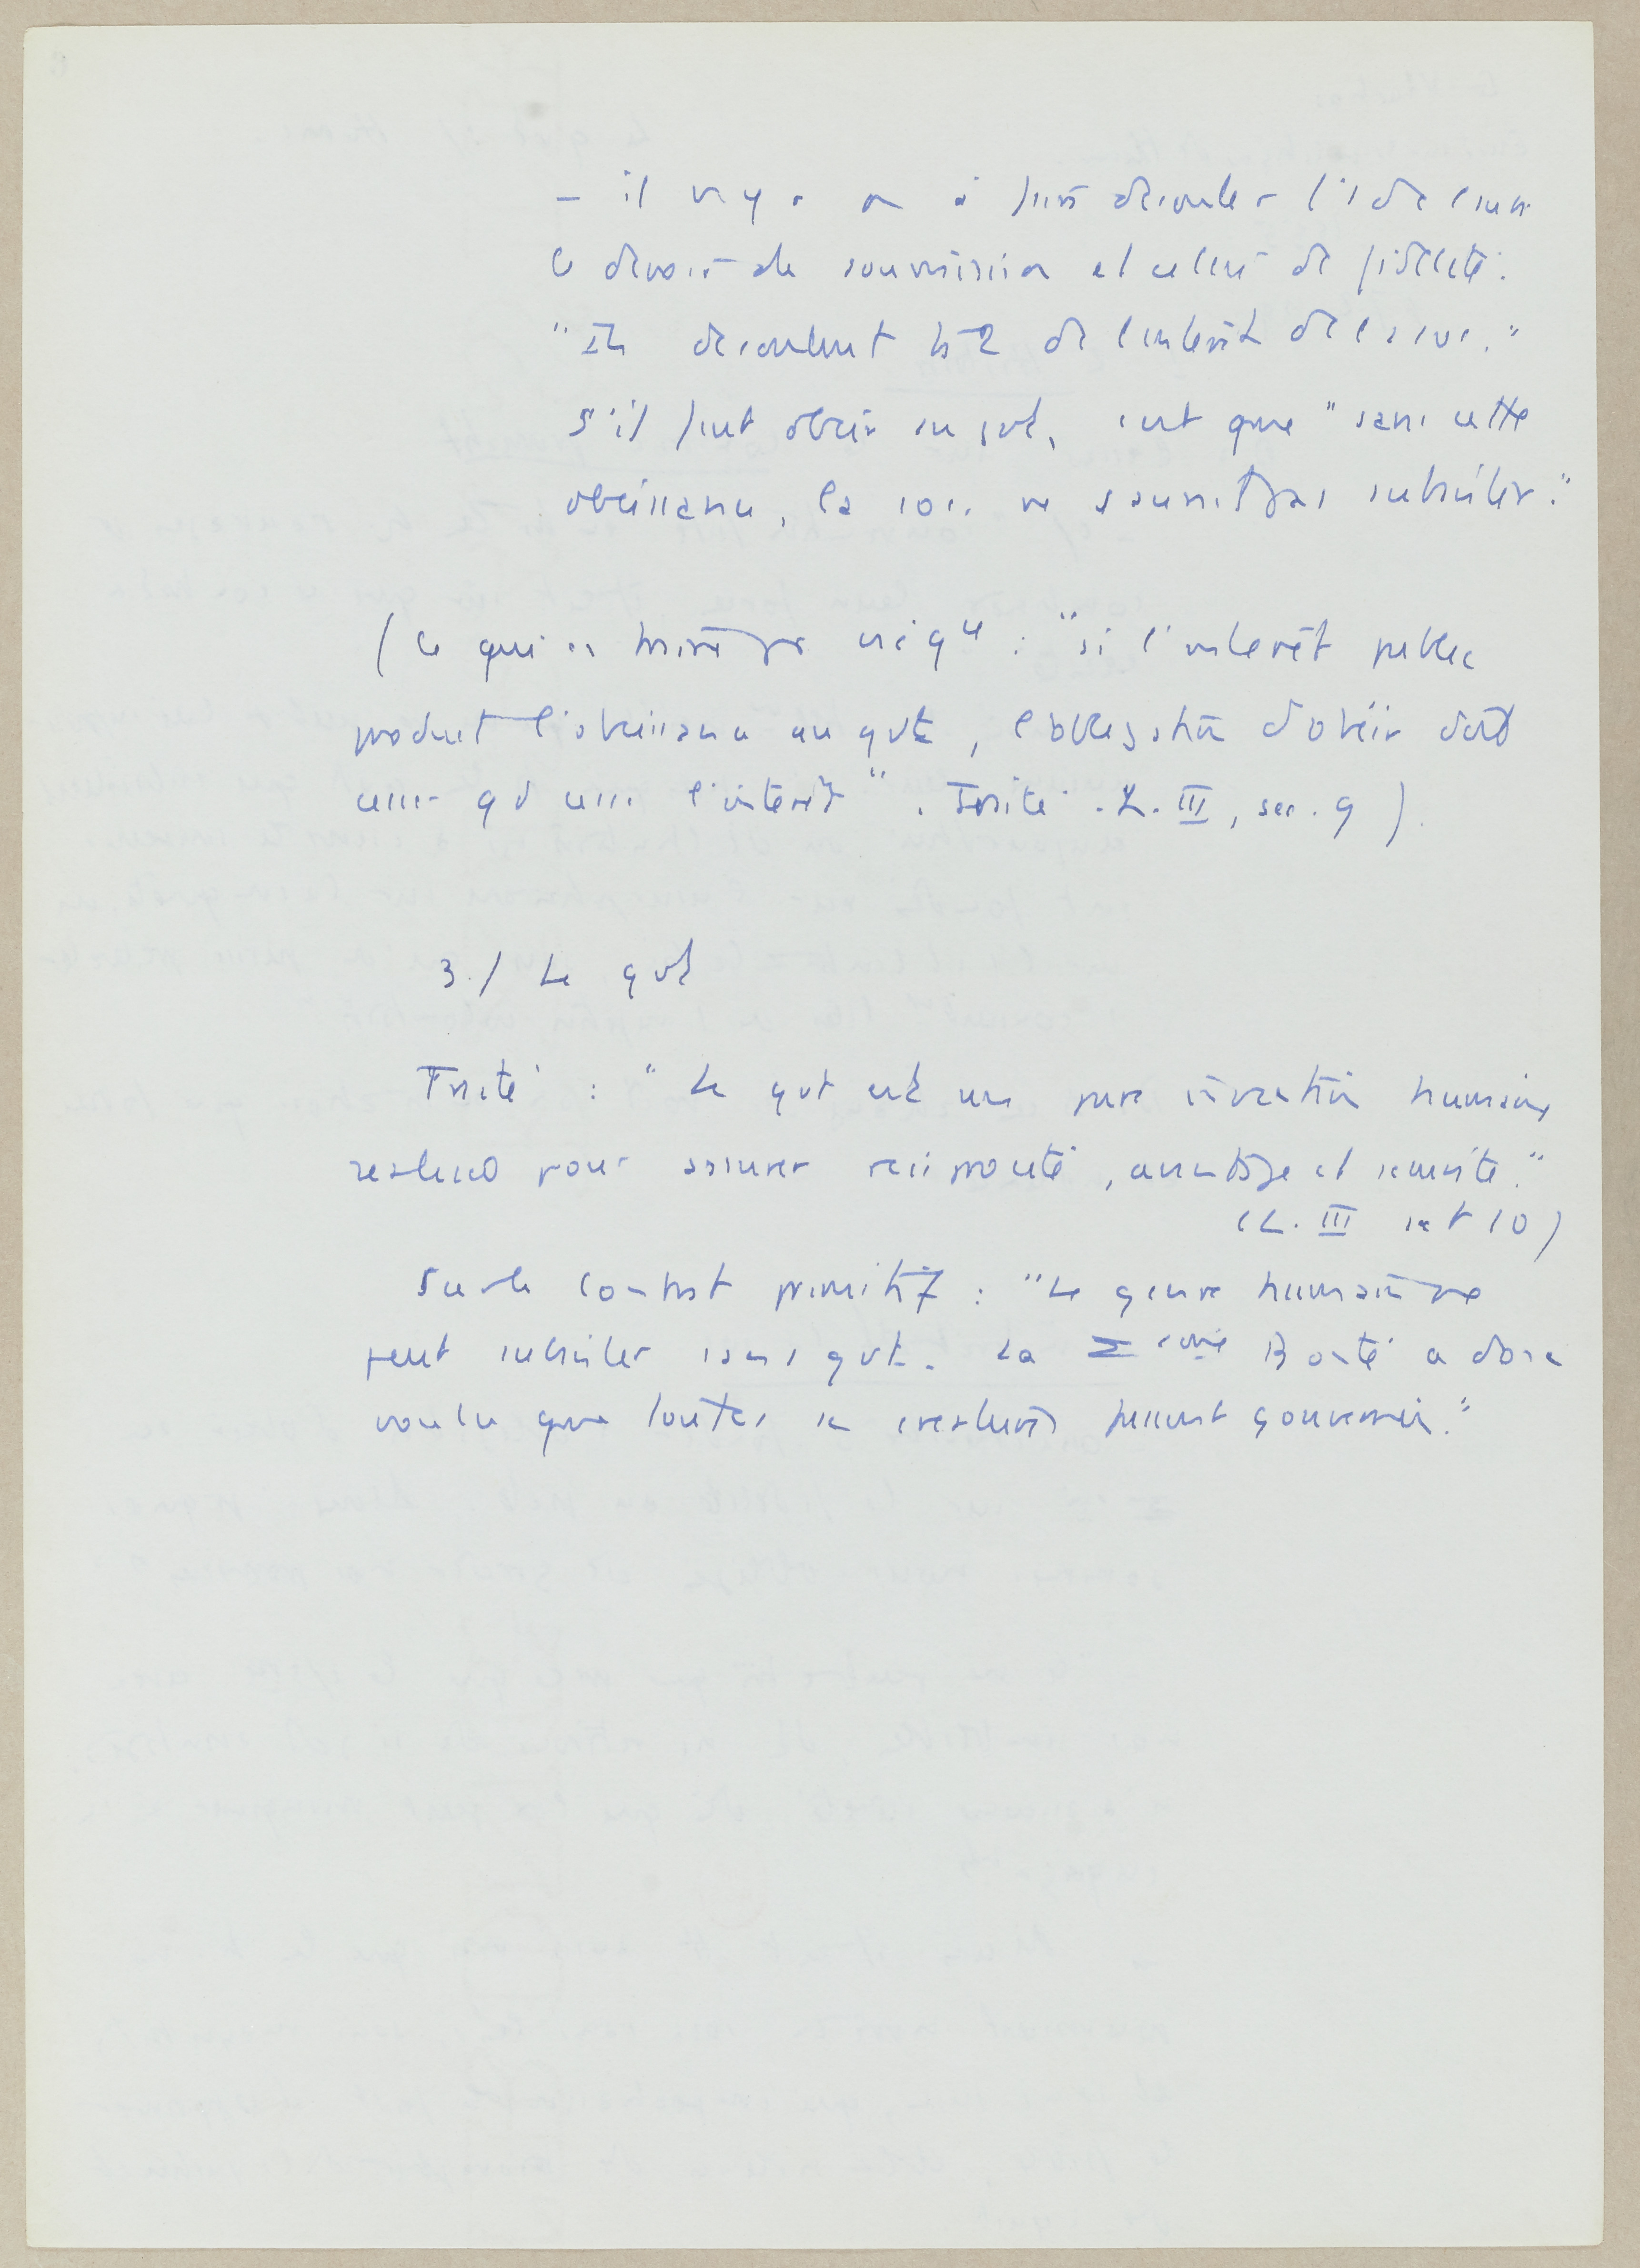 - il n'y a pas à faire découler l'1 de l'autre
le devoir de soumission et celui de fidélité.
"Ils découlent ts 2 de l'intérêt de la soc."
S'il faut obéir au gvt, c'est que "sans cette
obéissance, la soc. ne saurait pas subsister."
(Ce qui est très critique : "si l'intérêt public
produit l'obéissance au gvt, l'obligation d'obéir doit
cesser qd cesse l'intérêt". Traité. L. III, sec. 9).
3./ Le gvt
Traité : "Le gvt est une pure invention humaine
pour assurer réciprocité, avantage et sécurité."
(L. III sect 10)
Sur le contrat primitif : "Le genre humain ne
peut subsister sans gvt. La Bonté a donc
voulu que toutes ses créatures puissent gouvernées."